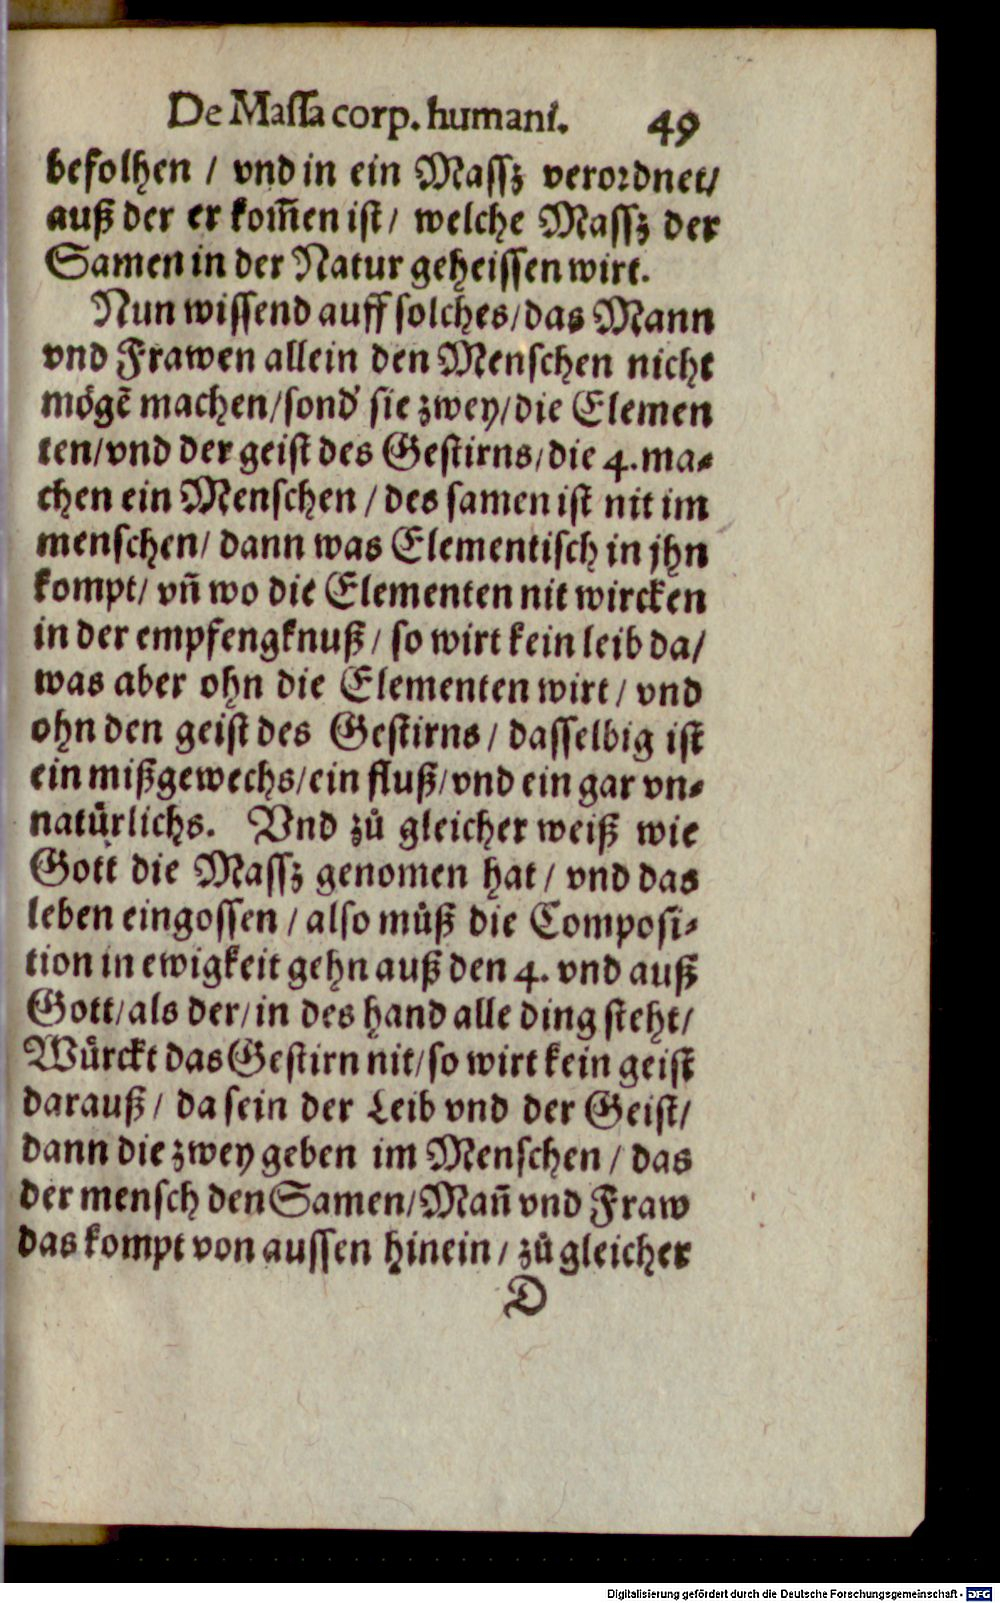 De Massa corp. humani. 49
befolhen / vnd in ein Massz verordnet/
auß der er kom̃en ist / welche Massz der
Samen in der Natur geheissen wirt.
Nun wissend auff solches/das Mann
vnd Frawen allein den Menschen nicht
mögẽ machen/sond' sie zwey/die Elemen
ten/vnd der geist des Gestirns/die 4. ma-
chen ein Menschen / des samen ist nit im
menschen/ dann was Elementisch in jhn
kompt/ vñ wo die Elementen nit wircken
in der empfengknuß / so wirt kein leib da/
was aber ohn die Elementen wirt / vnd
ohn den geist des Gestirns / dasselbig ist
ein mißgewechs/ein fluß/vnd ein gar vn-
natürlichs. Vnd zů gleicher weiß wie
Gott die Massz genomen hat / vnd das
leben eingossen / also můß die Composi-
tion in ewigkeit gehn auß den 4. vnd auß
Gott/als der/in des hand alle ding steht/
Würckt das Gestirn nit/so wirt kein geist
darauß / da sein der Leib vnd der Geist/
dann die zwey geben im Menschen / das
der mensch den Samen/Mañ vnd Fraw
das kompt von aussen hinein / zů gleicher
D
Digitalisierung gefördert durch die Deutsche Forschungsgemeinschaft - DFG